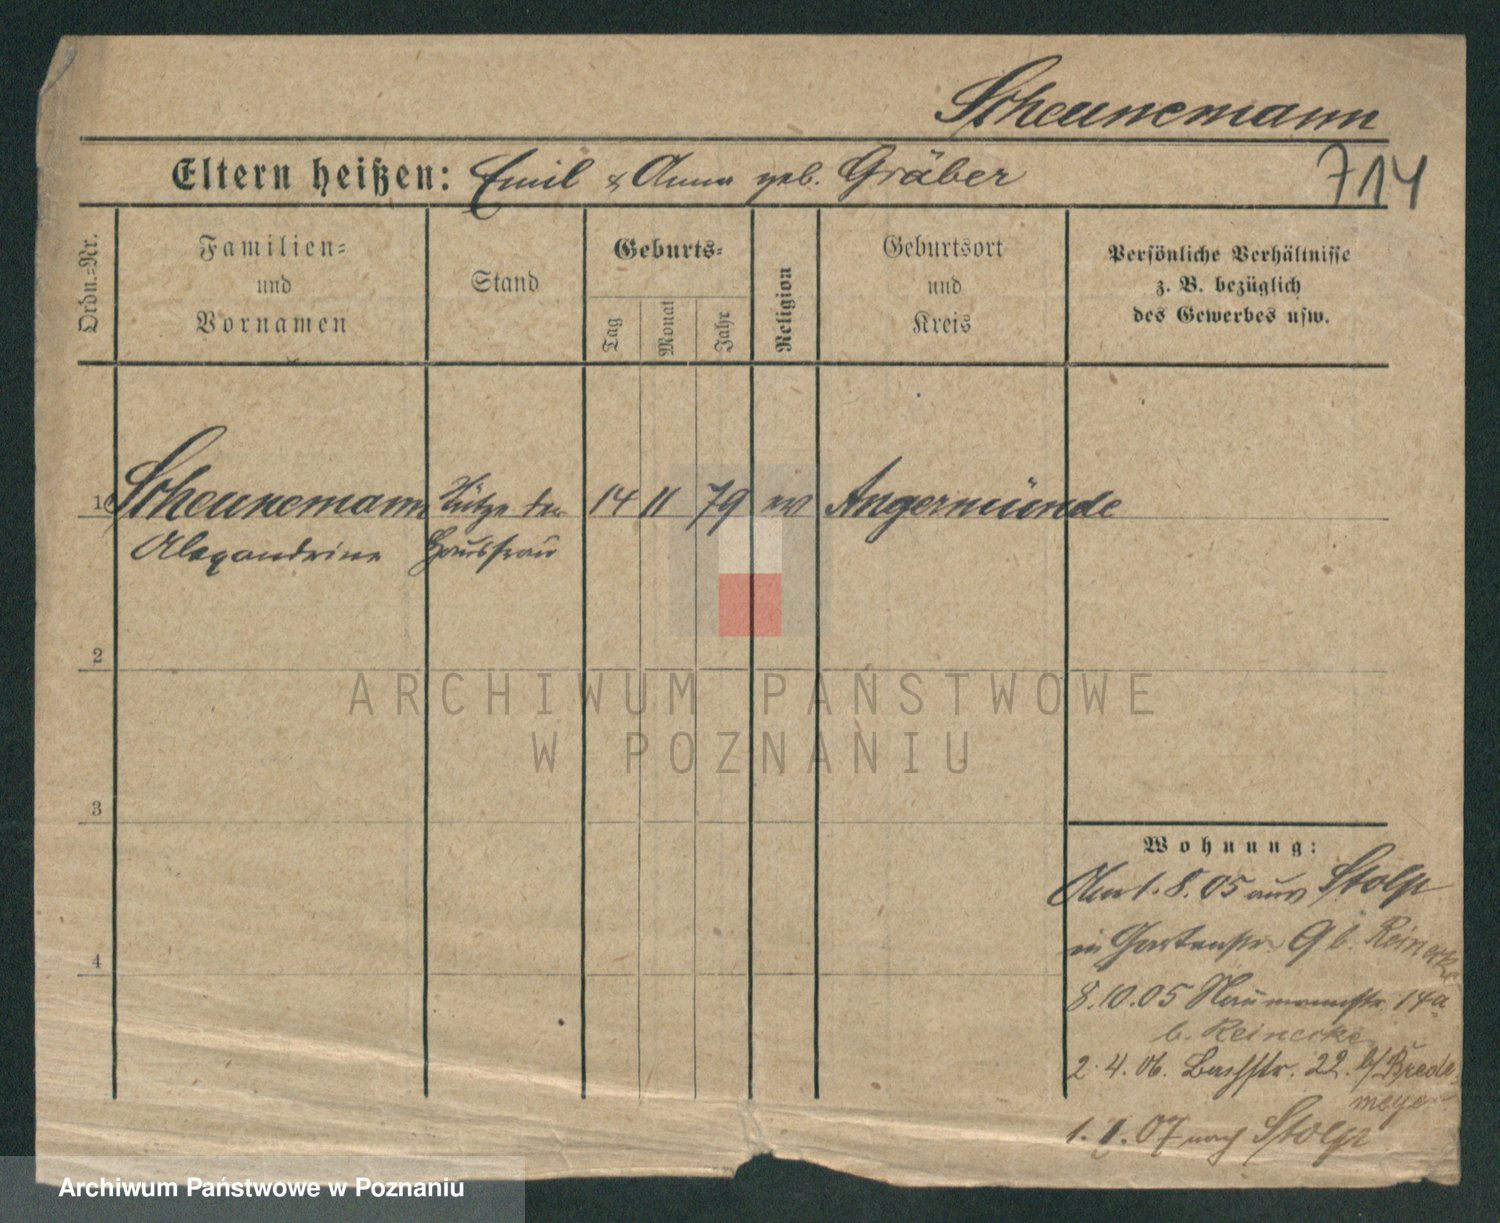 Scheunemann
Eltern heißen: Emil & Anna geb. Gräber
714
Ordn.=Nr.
Familien=
und
Vornamen
Stand
Geburts=
Tag
Monat
Jahr
Religion
Geburtsort
und
Kreis
Persönliche Verhältnisse
z. B. bezüglich
des Gewerbes usw.
1 Scheunemann Stütze der 14 11 79 ev Angermünde
Alexandrine Hausfrau
2
ARCHIWUM PAŃSTWOWE
W POZNANIU
3
4
Wohnung:
Am 1. 8. 05 aus Stolp
in Gartenstr. 9 b. Reinecke
8.10.05 Naumannstr. 14a
b. Reinecke
2. 4. 06. Bachstr. 22. b/ Brede
meyer
1. 1. 07 nach Stolp
Archiwum Państwowe w Poznaniu